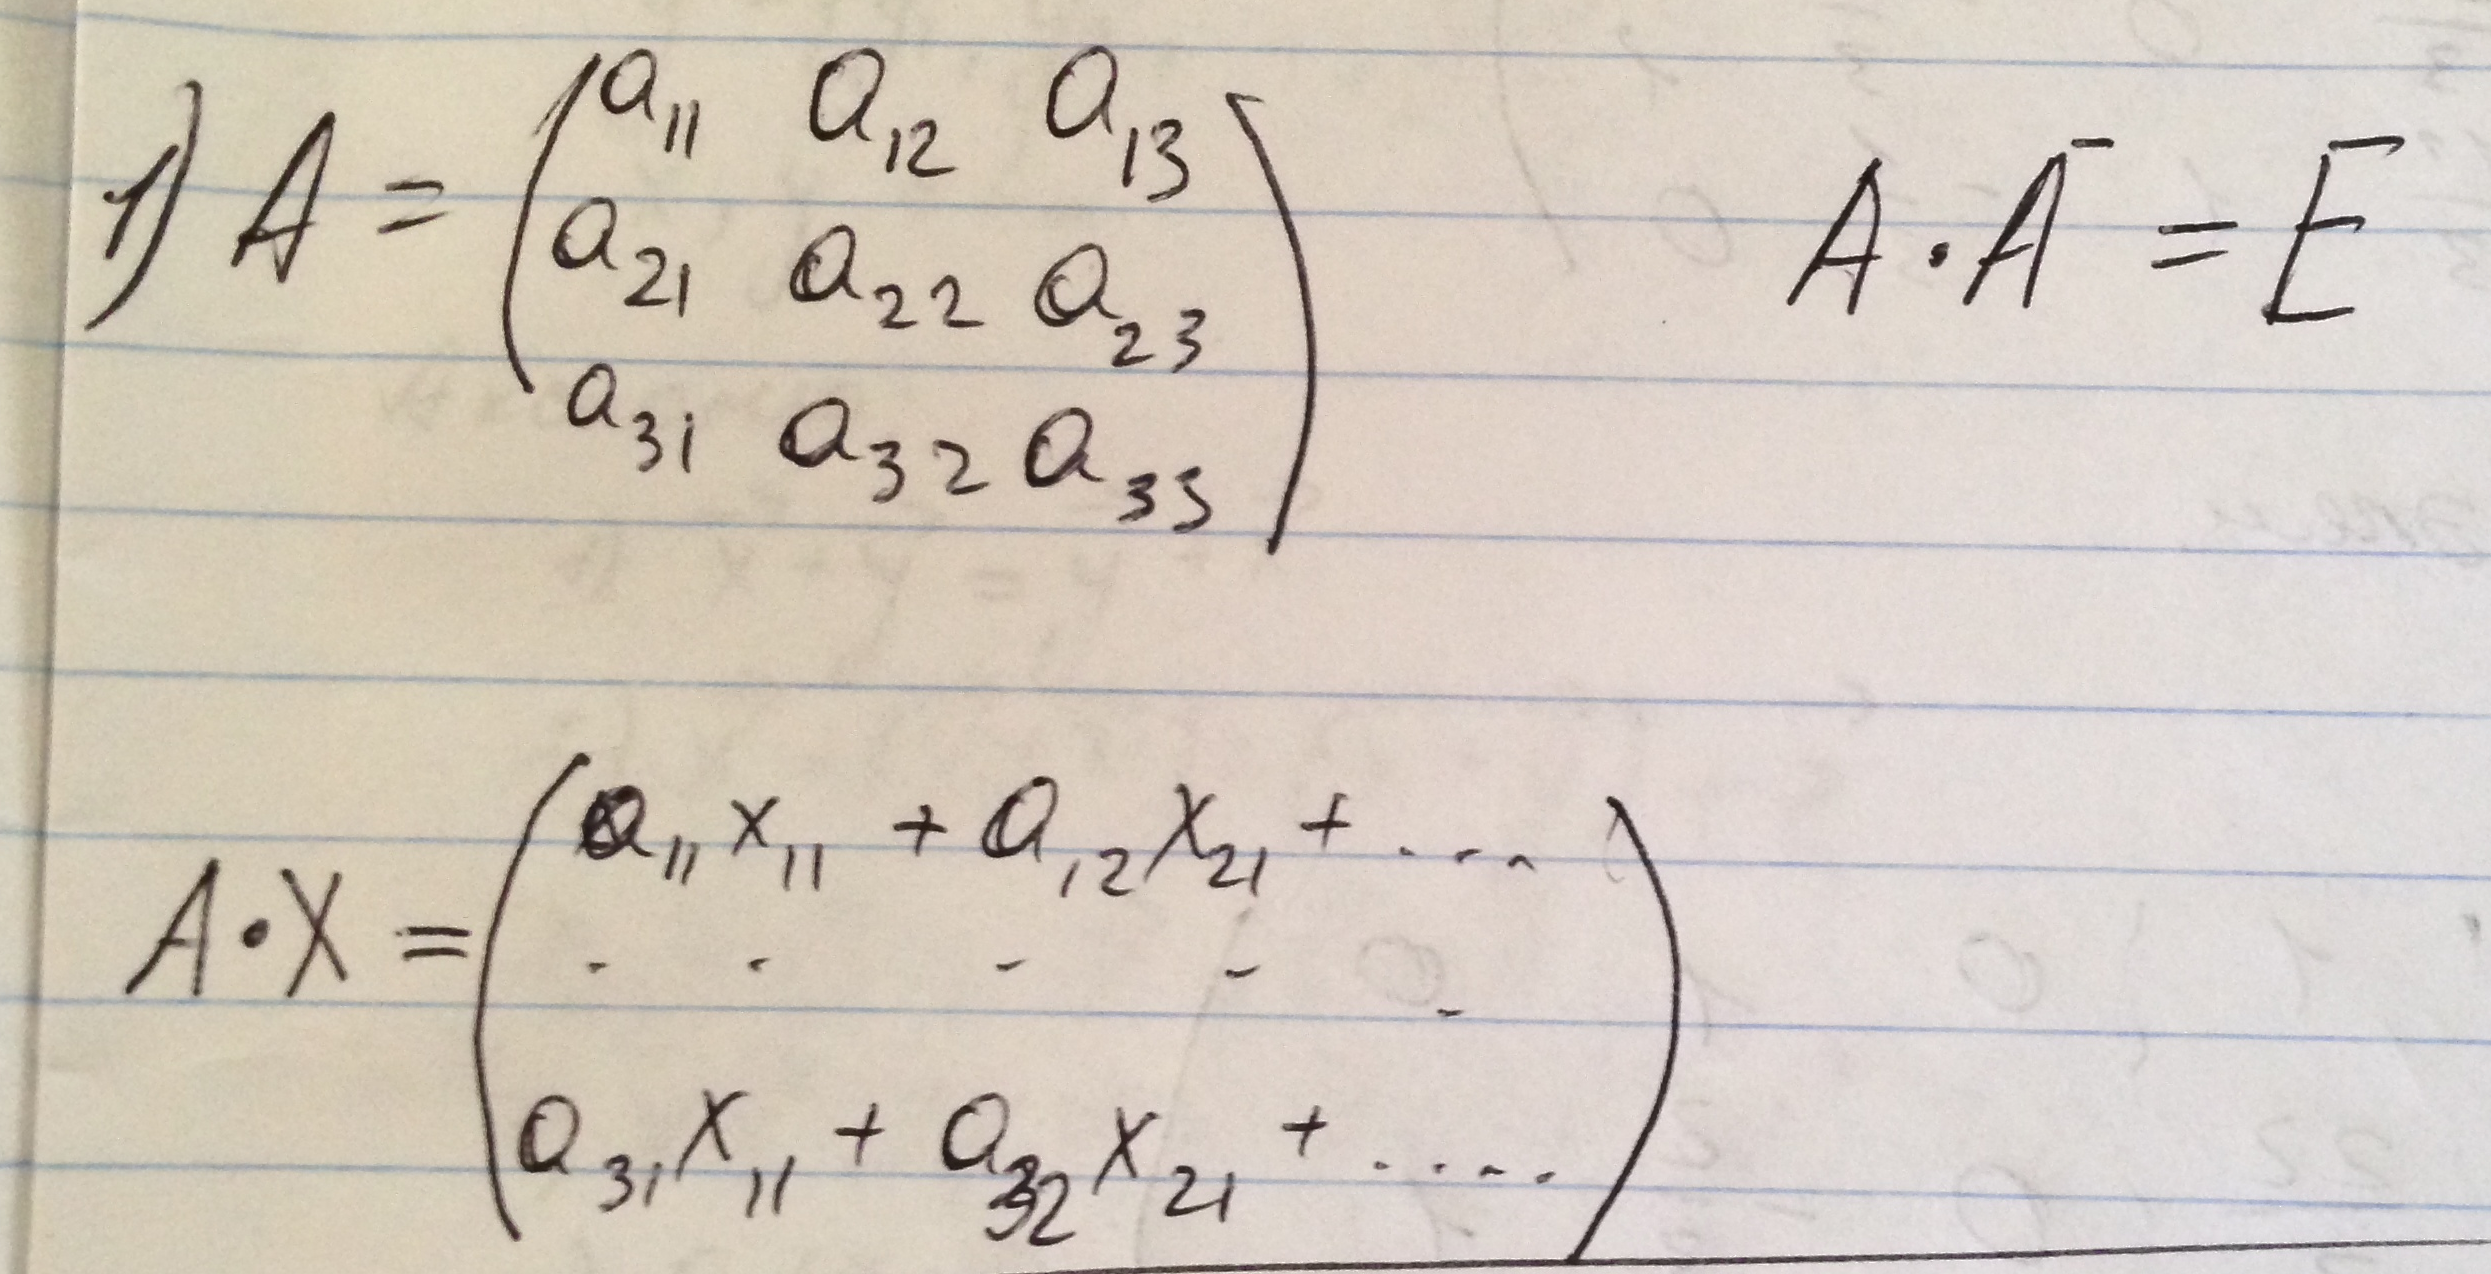 1) A = ( a₁₁ a₁₂ a₁₃
a₂₁ a₂₂ a₂₃
a₃₁ a₃₂ a₃₃ )
A · A⁻ = E
A · X = ( a₁₁ x₁₁ + a₁₂ x₂₁ + ....
- - - - -
a₃₁ x₁₁ + a₃₂ x₂₁ + ..... )